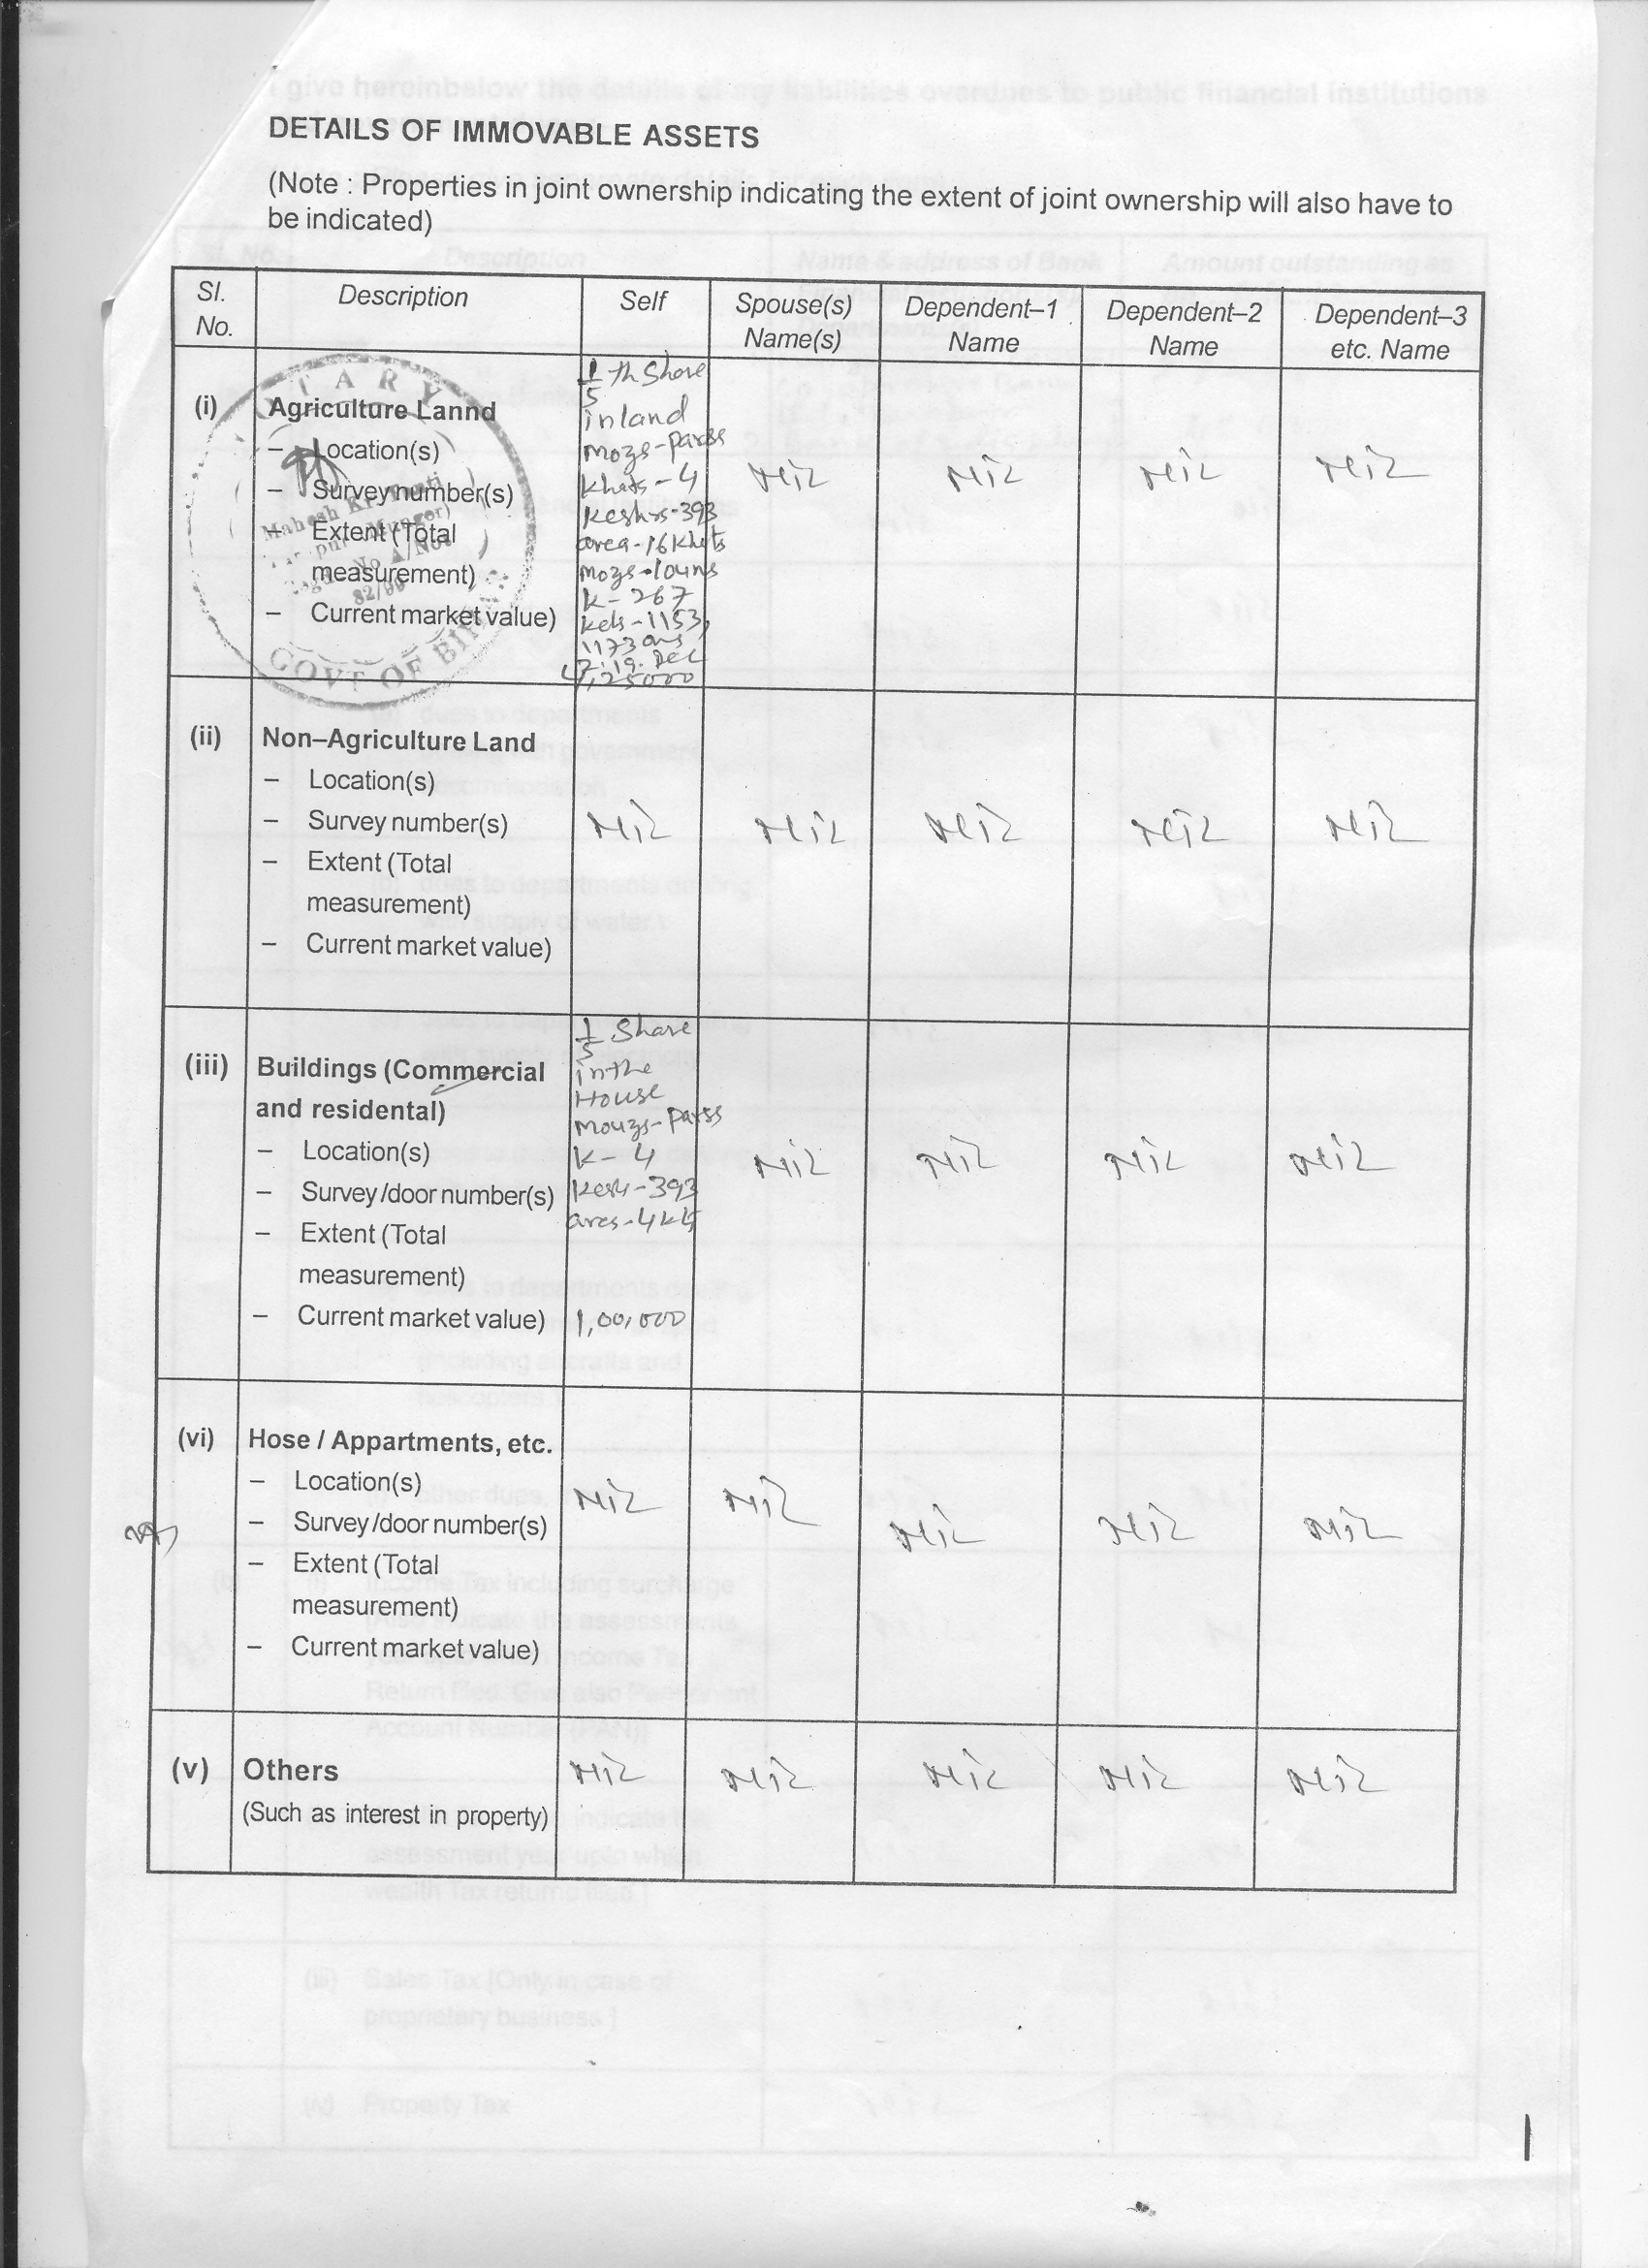 DETAILS OF IMMOVABLE ASSETS
(Note : Properties in joint ownership indicating the extent of joint ownership will also have to
be indicated)
Sl. No.
Description
Self
Spouse(s) Name(s)
Dependent–1 Name
Dependent–2 Name
Dependent–3 etc. Name
(i)
Agriculture Lannd
– Location(s)
– Survey number(s)
– Extent (Total
measurement)
– Current market value)
1/5 th Share
in land
area-16
K-267
Nil
Nil
Nil
Nil
GOVT OF BIHAR
(ii)
Non–Agriculture Land
– Location(s)
– Survey number(s)
– Extent (Total
measurement)
– Current market value)
Nil
Nil
Nil
Nil
Nil
(iii)
Buildings (Commercial
and residental)
– Location(s)
– Survey/door number(s)
– Extent (Total
measurement)
– Current market value)
1/5 Share
in the
House
K-4
1,00,000
Nil
Nil
Nil
Nil
(vi)
Hose / Appartments, etc.
– Location(s)
– Survey/door number(s)
– Extent (Total
measurement)
– Current market value)
Nil
Nil
Nil
Nil
Nil
(v)
Others
(Such as interest in property)
Nil
Nil
Nil
Nil
Nil